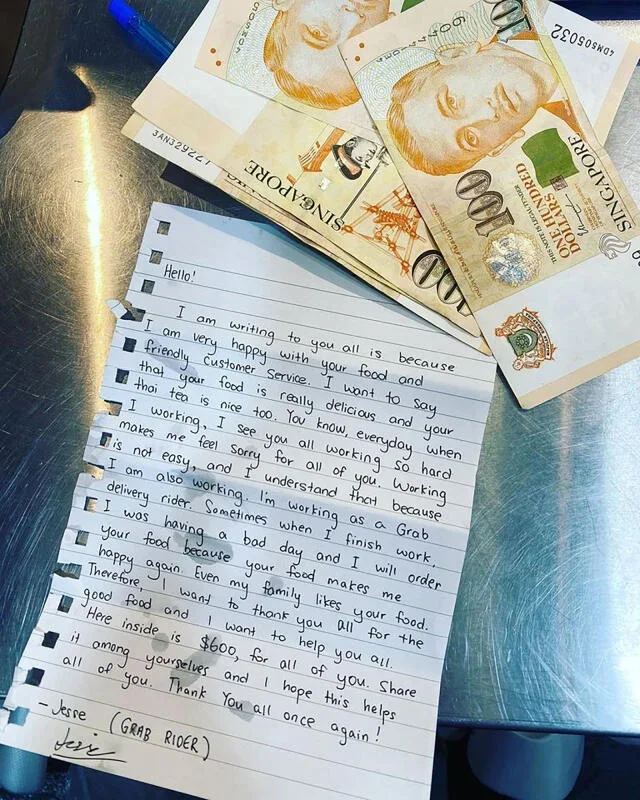 4DM505032
100
SINGAPORE
ONE HUNDRED
DOLLARS
THIS NOTE IS LEGAL TENDER
100
3AN329221
SINGAPORE
100
Hello!
I am writing to you all is because
I am very happy with your food and
friendly customer service. I want to say
that your food is really delicious and your
thai tea is nice too. You know, everyday when
I working, I see you all working so hard
makes me feel sorry for all of you. Working
is not easy, and I understand that because
I am also working. I'm working as a Grab
delivery rider. Sometimes when I finish work,
I was having a bad day and I will order
your food because your food makes me
happy again. Even my family likes your food.
Therefore, I want to thank you all for the
good food and I want to help you all.
Here inside is $600, for all of you. Share
it among yourselves and I hope this helps
all of you. Thank You all once again!
- Jesse (GRAB RIDER)
Jessie